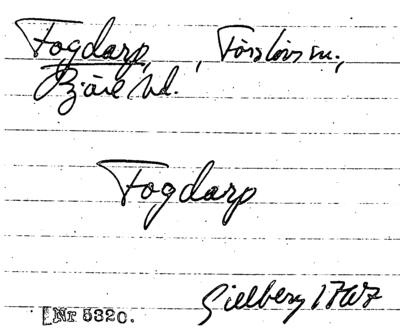 Fogdarp, , Förslövs sn.,
Bjäre hd.
Fogdarp
Gillberg 1767
[Nr 5320.